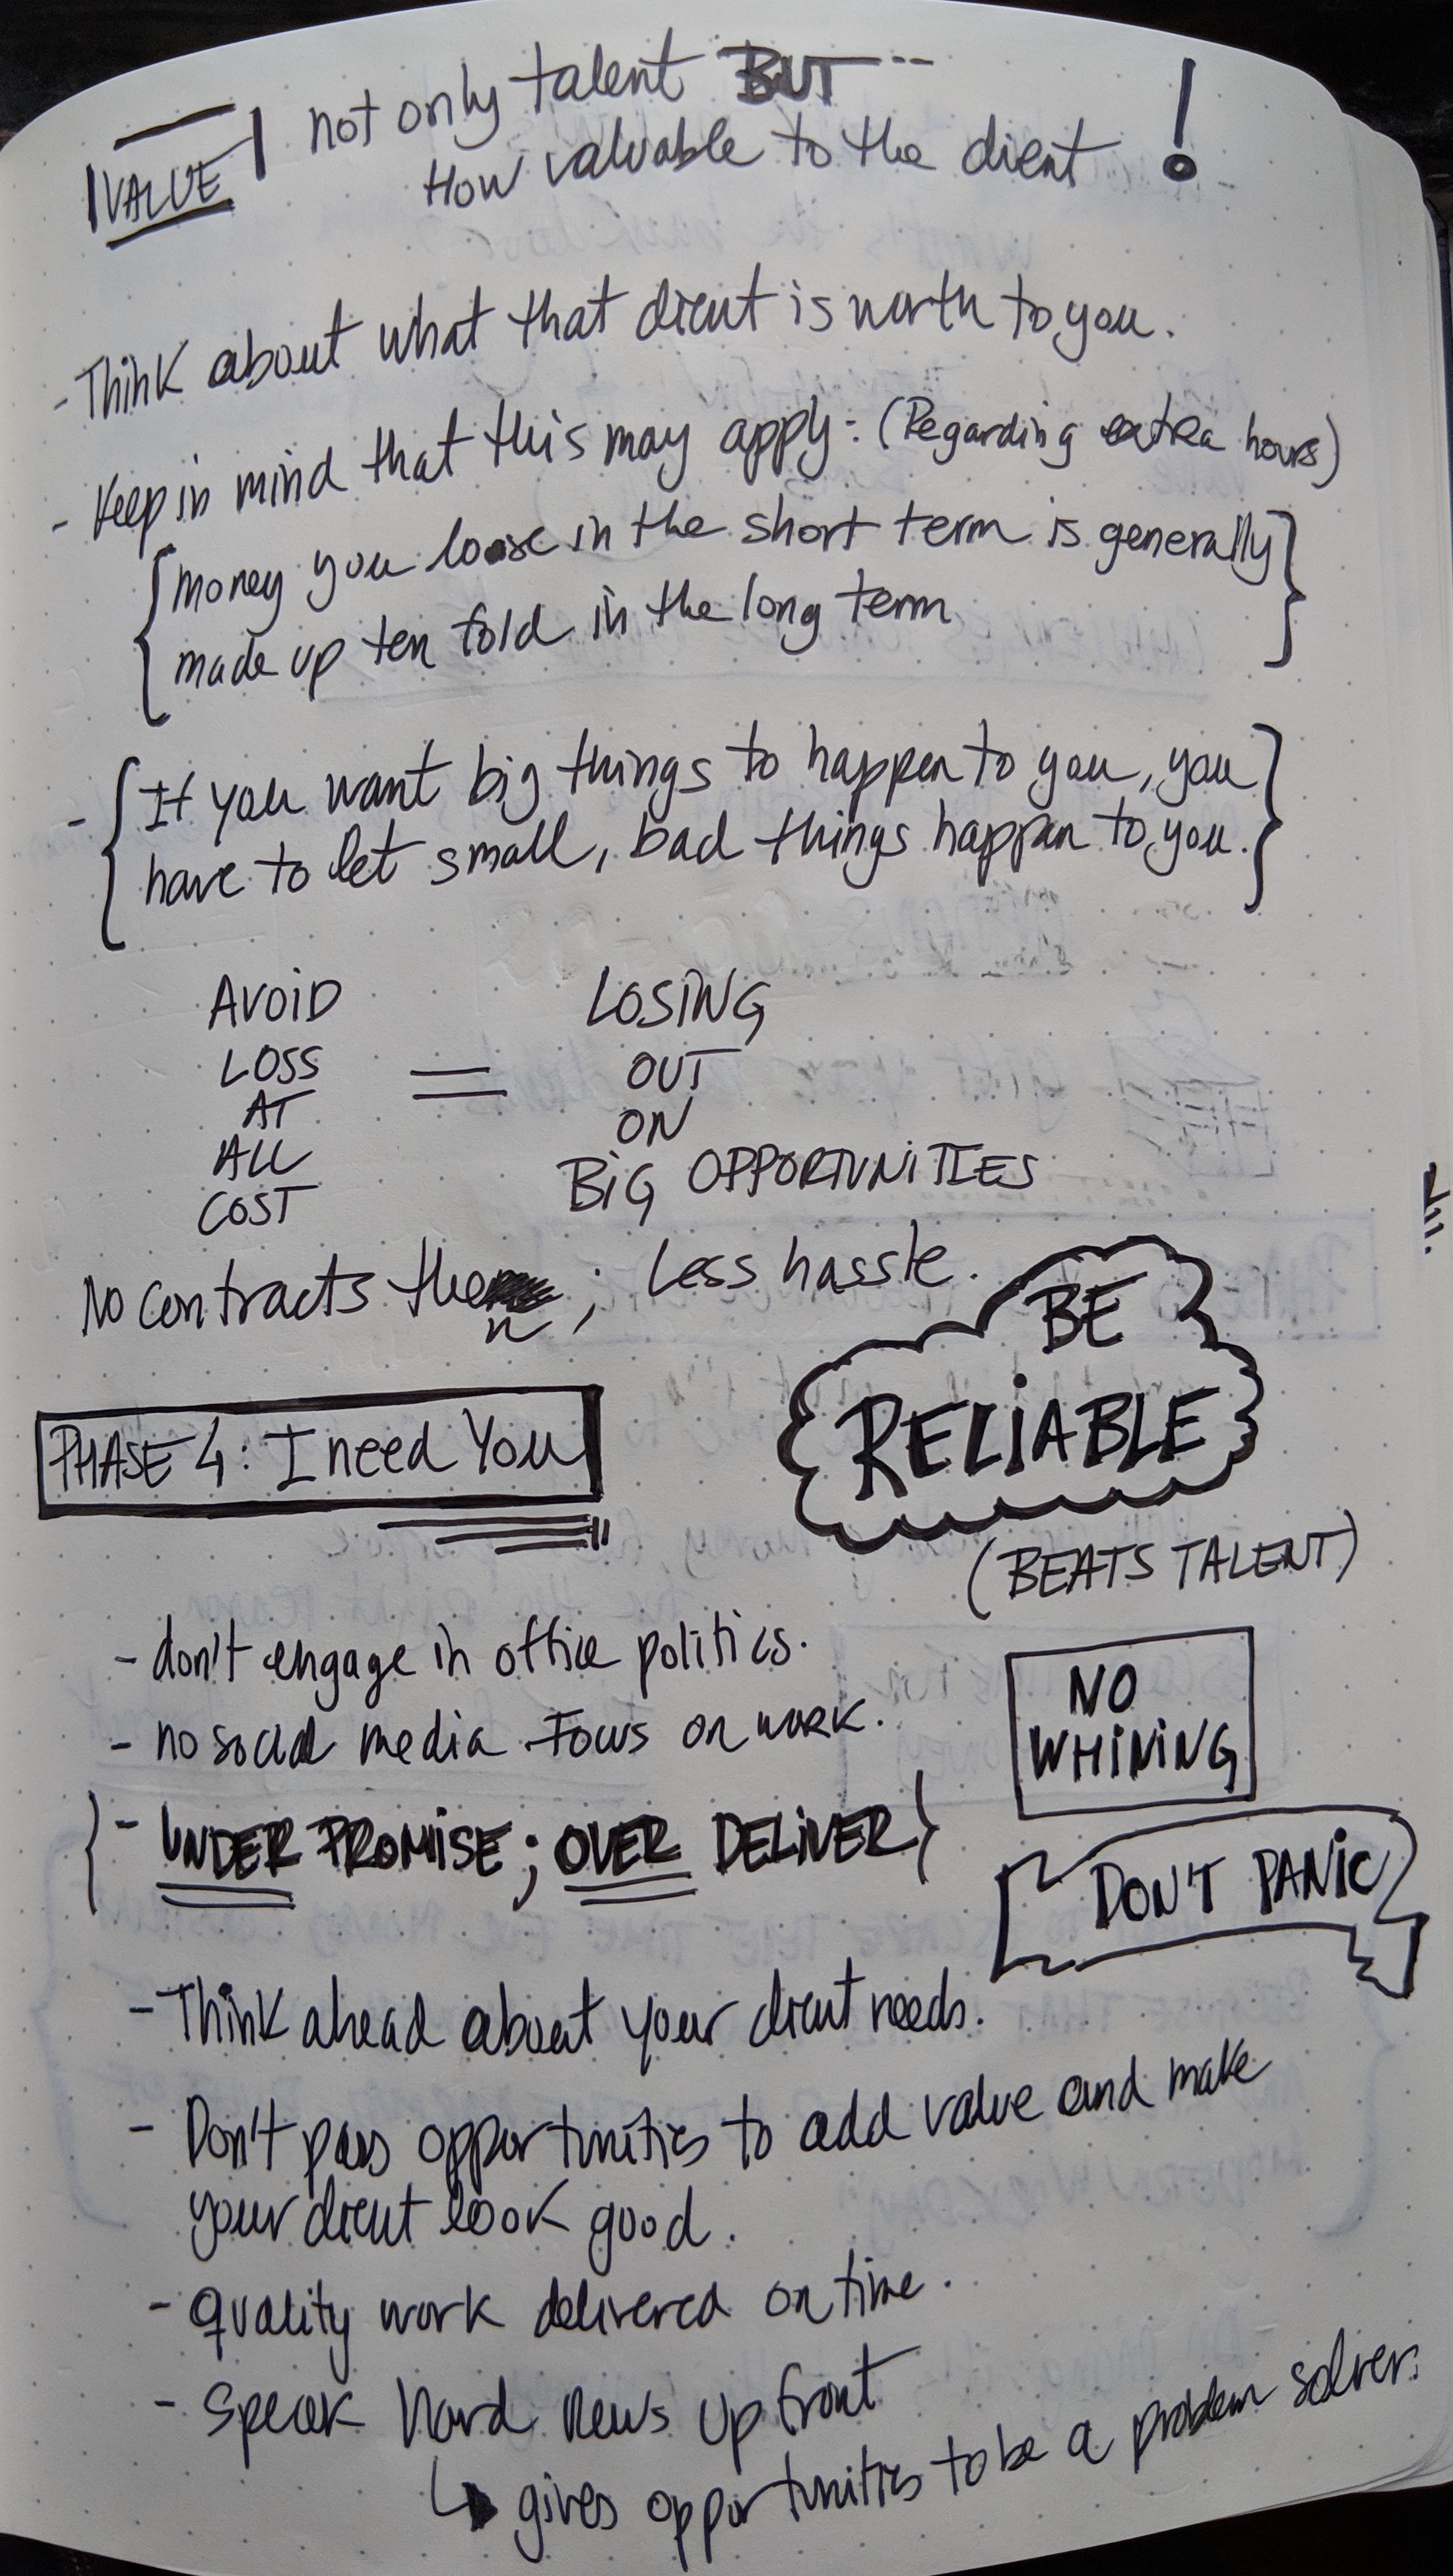 VALUE
not only talent BUT...
How valuable to the client !
- Think about what that client is worth to you.
- Keep in mind that this may apply: (Regarding extra hours)
{ money you loose in the short term is generally }
made up ten fold in the long term
- { If you want big things to happen to you, you }
have to let small, bad things happen to you.
AVOID
LOSS
AT
ALL
COST
=
LOSING
OUT
ON
BIG OPPORTUNITIES
No contracts then; Less hassle.
BE
RELIABLE
(BEATS TALENT)
PHASE 4: I need You
- don't engage in office politics.
- no social media. Focus on work.
NO
WHINING
{ - UNDER PROMISE; OVER DELIVER }
DON'T PANIC
- Think ahead about your client needs.
- Don't pass opportunities to add value and make
your client look good.
- quality work delivered on time.
- Speak hard news up front
↳ gives opportunities to be a problem solver.